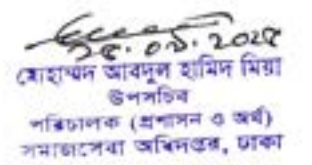 ২৪.০৯.২০২৪
মোহাম্মদ আবদুল হামিদ মিয়া
উপসচিব
পরিচালক (প্রশাসন ও অর্থ)
সমাজসেবা অধিদপ্তর, ঢাকা